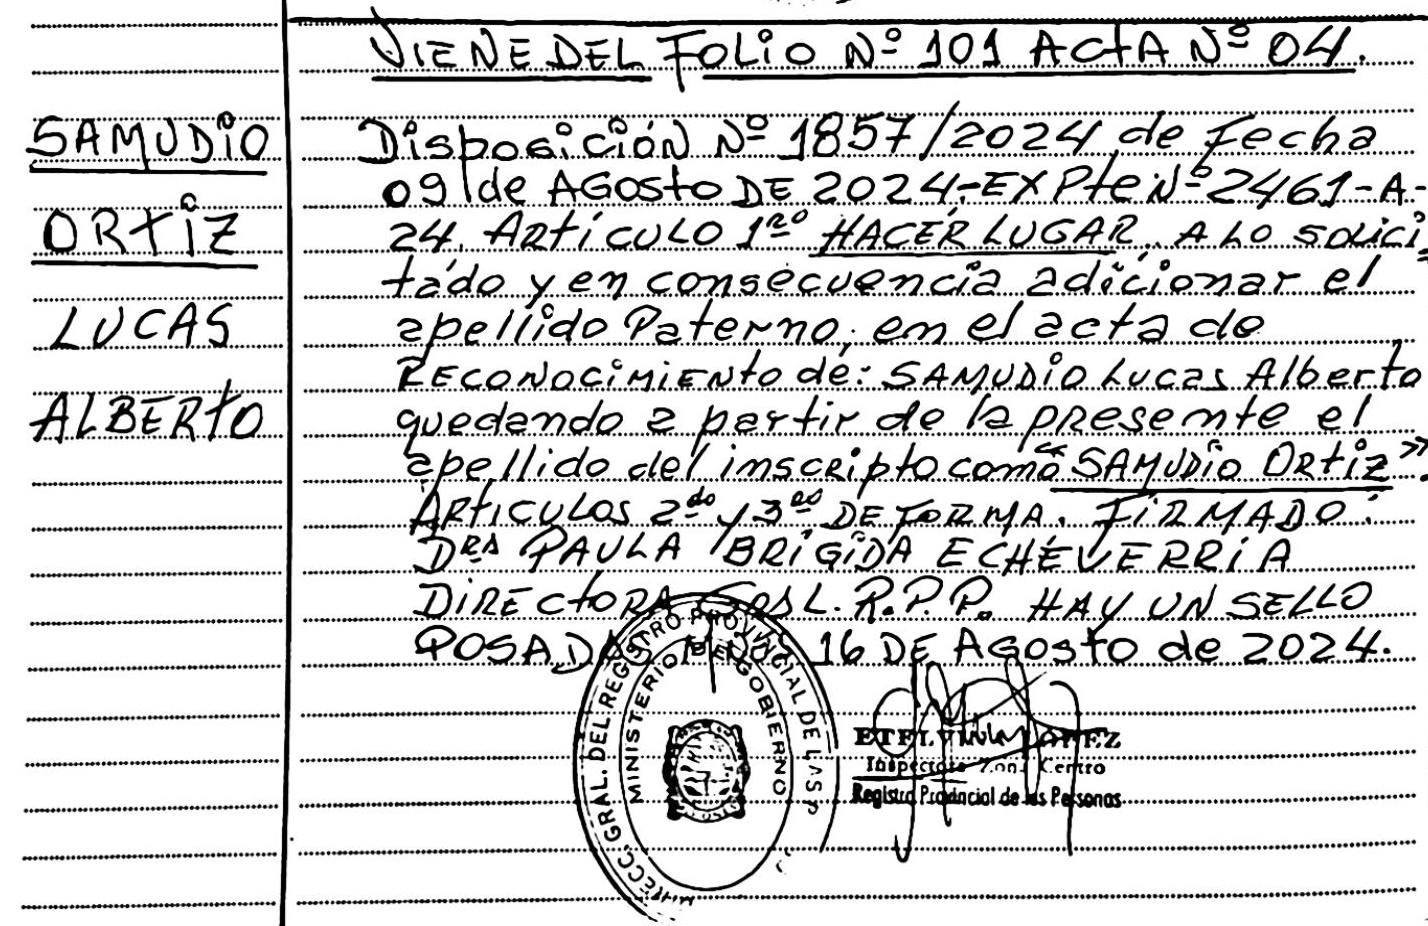 VIENE DEL FOLIO Nº 101 ACTA Nº 04.
SAMUDIO
ORTIZ
LUCAS
ALBERTO
Disposición Nº 1857/2024 de Fecha
09 de AGOSTO DE 2024.-EXPte Nº 2461-A-
24. ARTÍCULO 1ro HACER LUGAR, A LO SOLICI-
tado y en consecuencia adicionar el
apellido Paterno, en el acta de
RECONOCIMIENTO de: SAMUDIO Lucas Alberto
quedando a partir de la presente el
apellido del inscripto como "SAMUDIO ORTIZ".
ARTICULOS 2do y 3ro DE FORMA. FIRMADO:
DRA PAULA BRÍGIDA ECHEVERRÍA
DIRECTORA GRAL. R.P.P. HAY UN SELLO
POSADAS 16 DE AGOSTO de 2024.
GRAL. DEL REGISTRO PROVINCIAL DE LAS P
MINISTERIO DE GOBIERNO
ETELVINA
Inspectora Zona Centro
Registro Provincial de las Personas